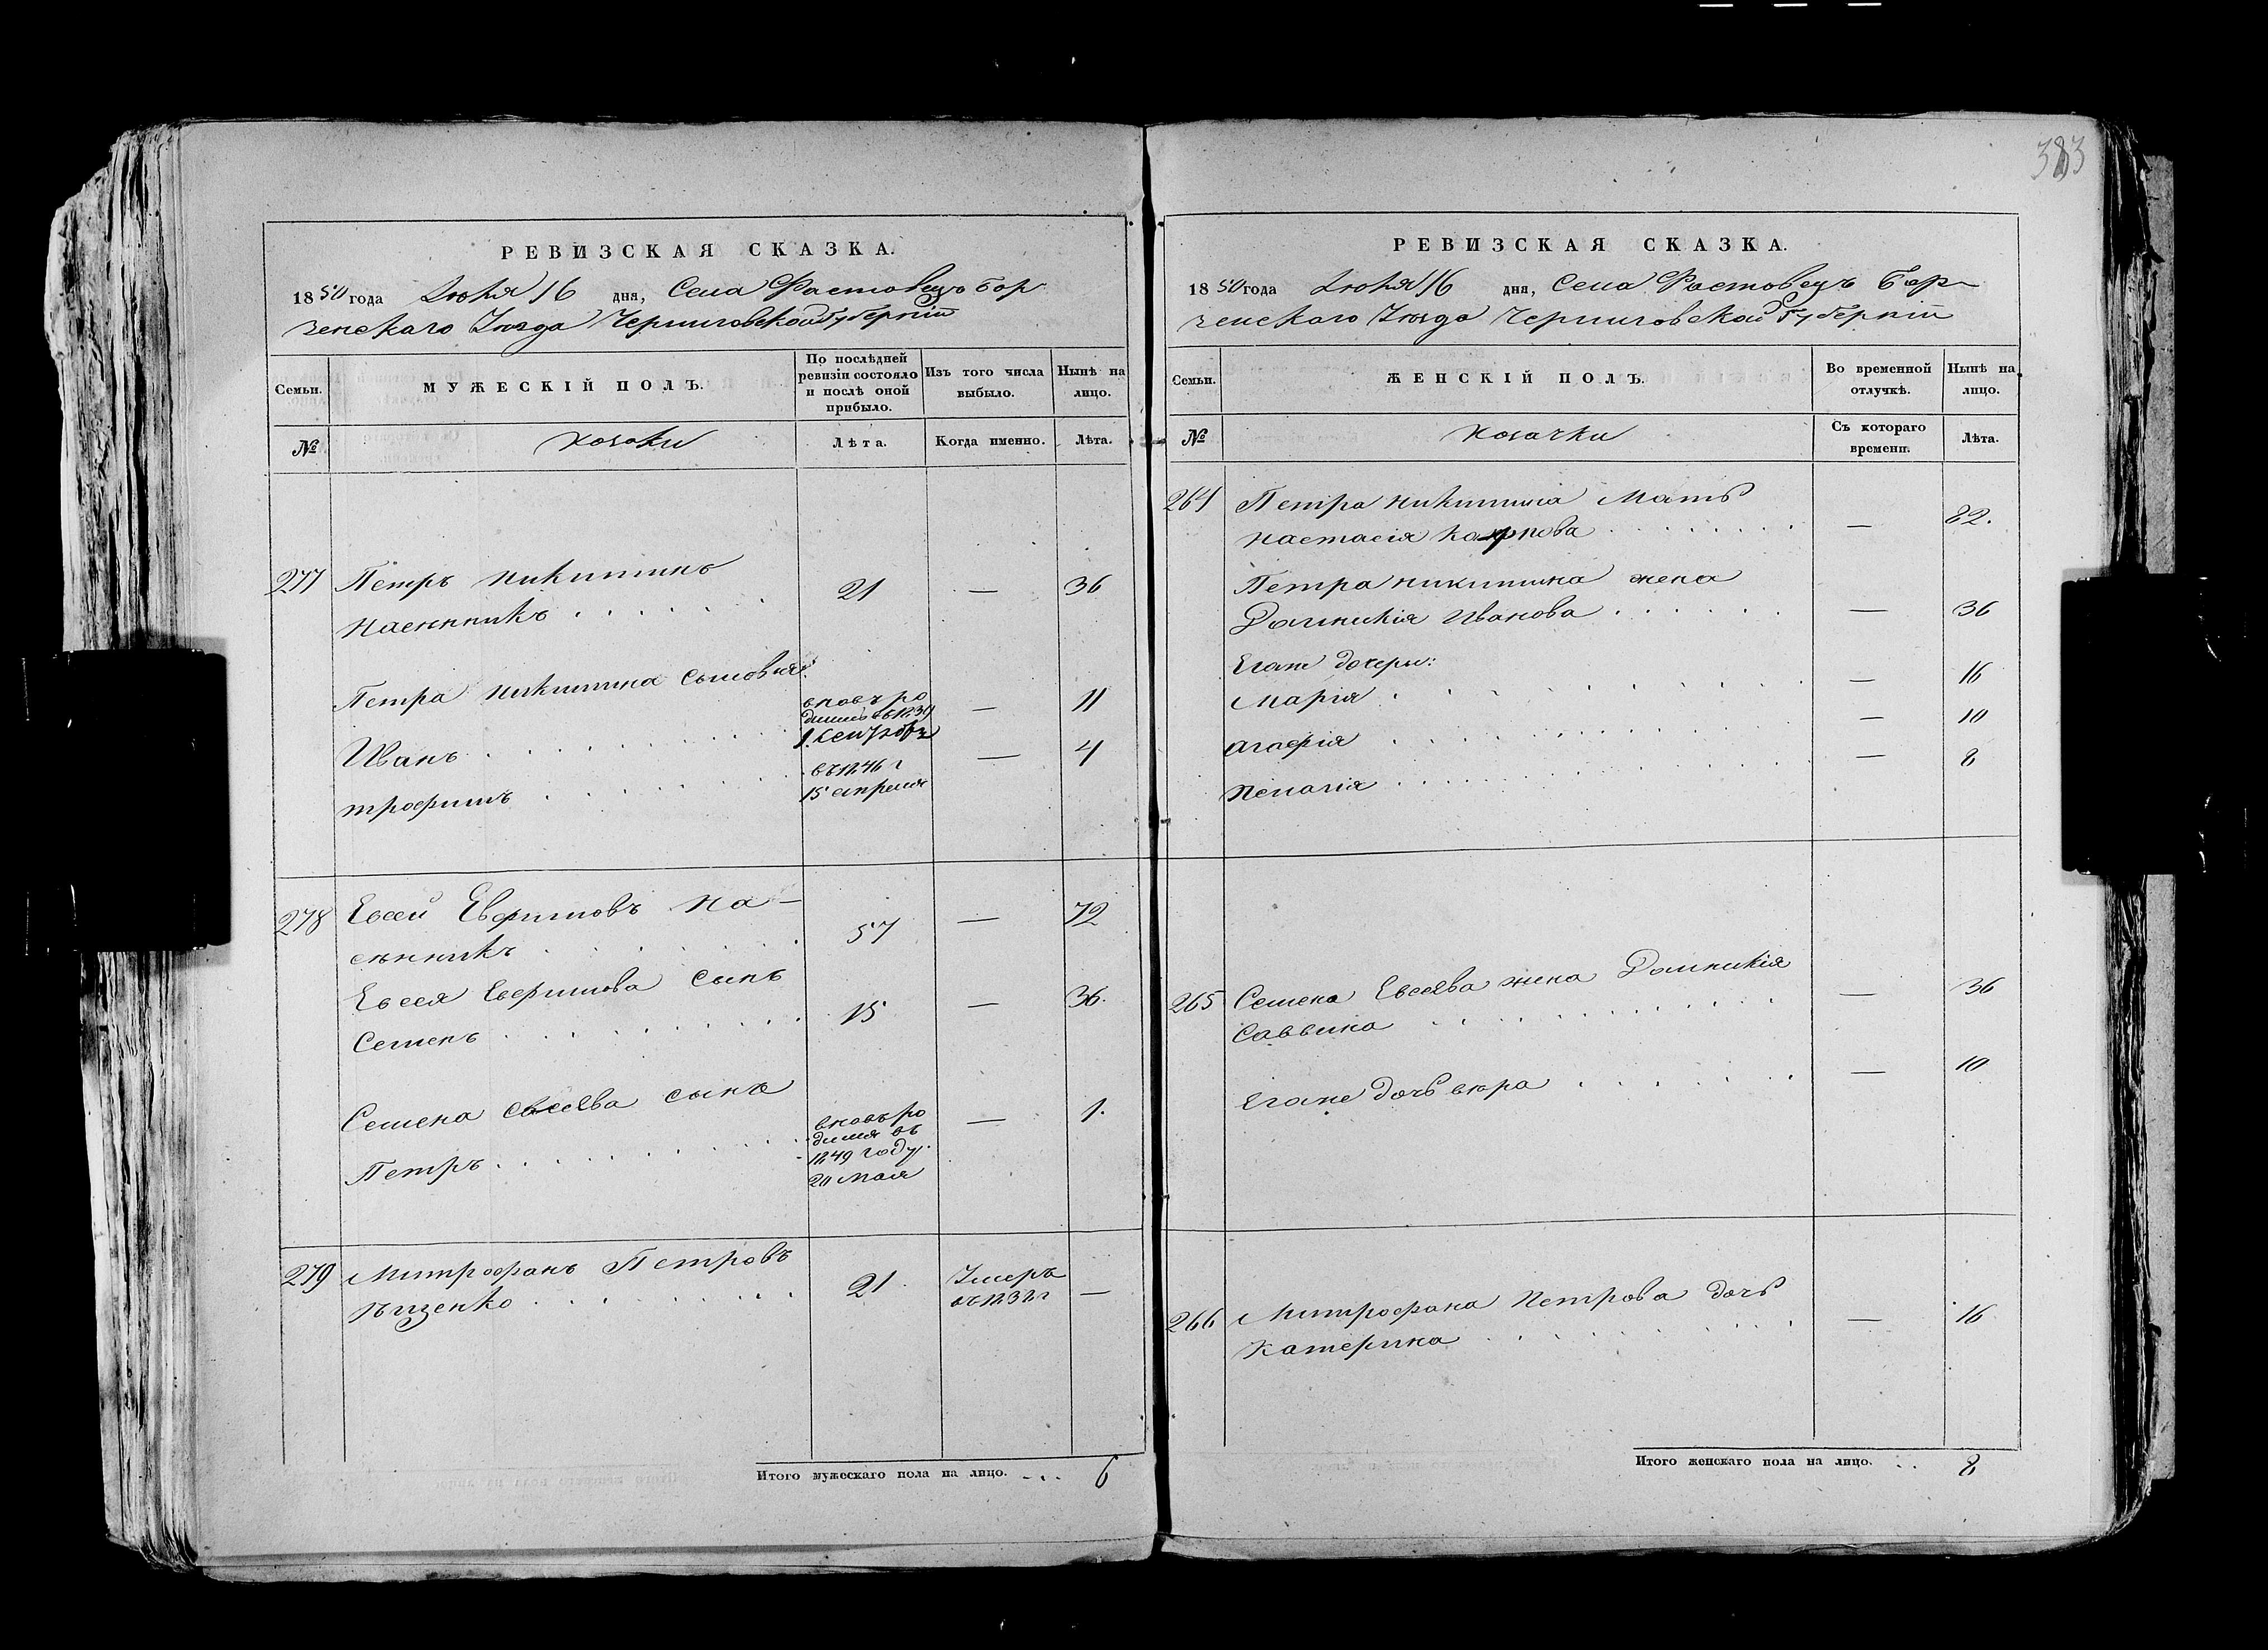 383
РЕВИЗСКАЯ СКАЗКА.
1850 года Іюня 16 дня, Села Фастовецъ Бор
зенскаго Уѣзда Черниговской Губерніи
Семьи. МУЖЕСКІЙ ПОЛЪ. По послѣдней ревизіи состояло и послѣ оной прибыло. Изъ того числа выбыло. Нынѣ на лицо.
№ Козаки Лѣта. Когда именно. Лѣта.
277 Петръ Никитинъ
21 — 36
Петра Никитина сыновья:
вновь ро
Иванъ — 11
Трофимъ въ 1846 г
15 апреля — 4
278 Евсей Евфимовъ На-
сѣнникъ 57 — 72
Евсея Евфимова сынъ
Семенъ 15 — 36.
Семена Евсеева сынъ
Петръ вновь ро
дился въ
1849 году
20 мая — 1.
279 Митрофанъ Петровъ
21 Умеръ
—
Итого мужескаго пола на лицо. 6
РЕВИЗСКАЯ СКАЗКА.
1850 года Іюня 16 дня, Села Фастовецъ Бор-
зенскаго Уѣзда Черниговской Губерніи
Семьи. ЖЕНСКІЙ ПОЛЪ. Во временной отлучкѣ. Нынѣ на лицо.
№ Козачки Съ котораго времени. Лѣта.
264 Петра Никитина Мать
Настасія Карпова — 82.
Петра Никитина жена
Домникія Иванова — 36
Егоже дочери:
Марія — 16
Агафія — 10
Пелагія — 8
265 Семена Евсеева жена Домникія
Саввина — 36
Егоже дочь — 10
266 Митрофана Петрова дочь
Катерина — 16
Итого женскаго пола на лицо. 8